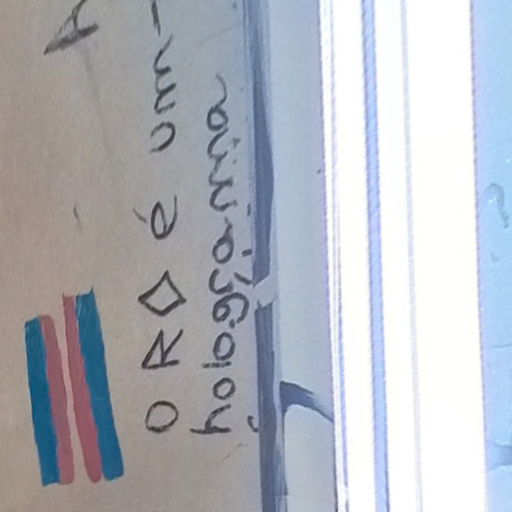 O RD é um
holograma